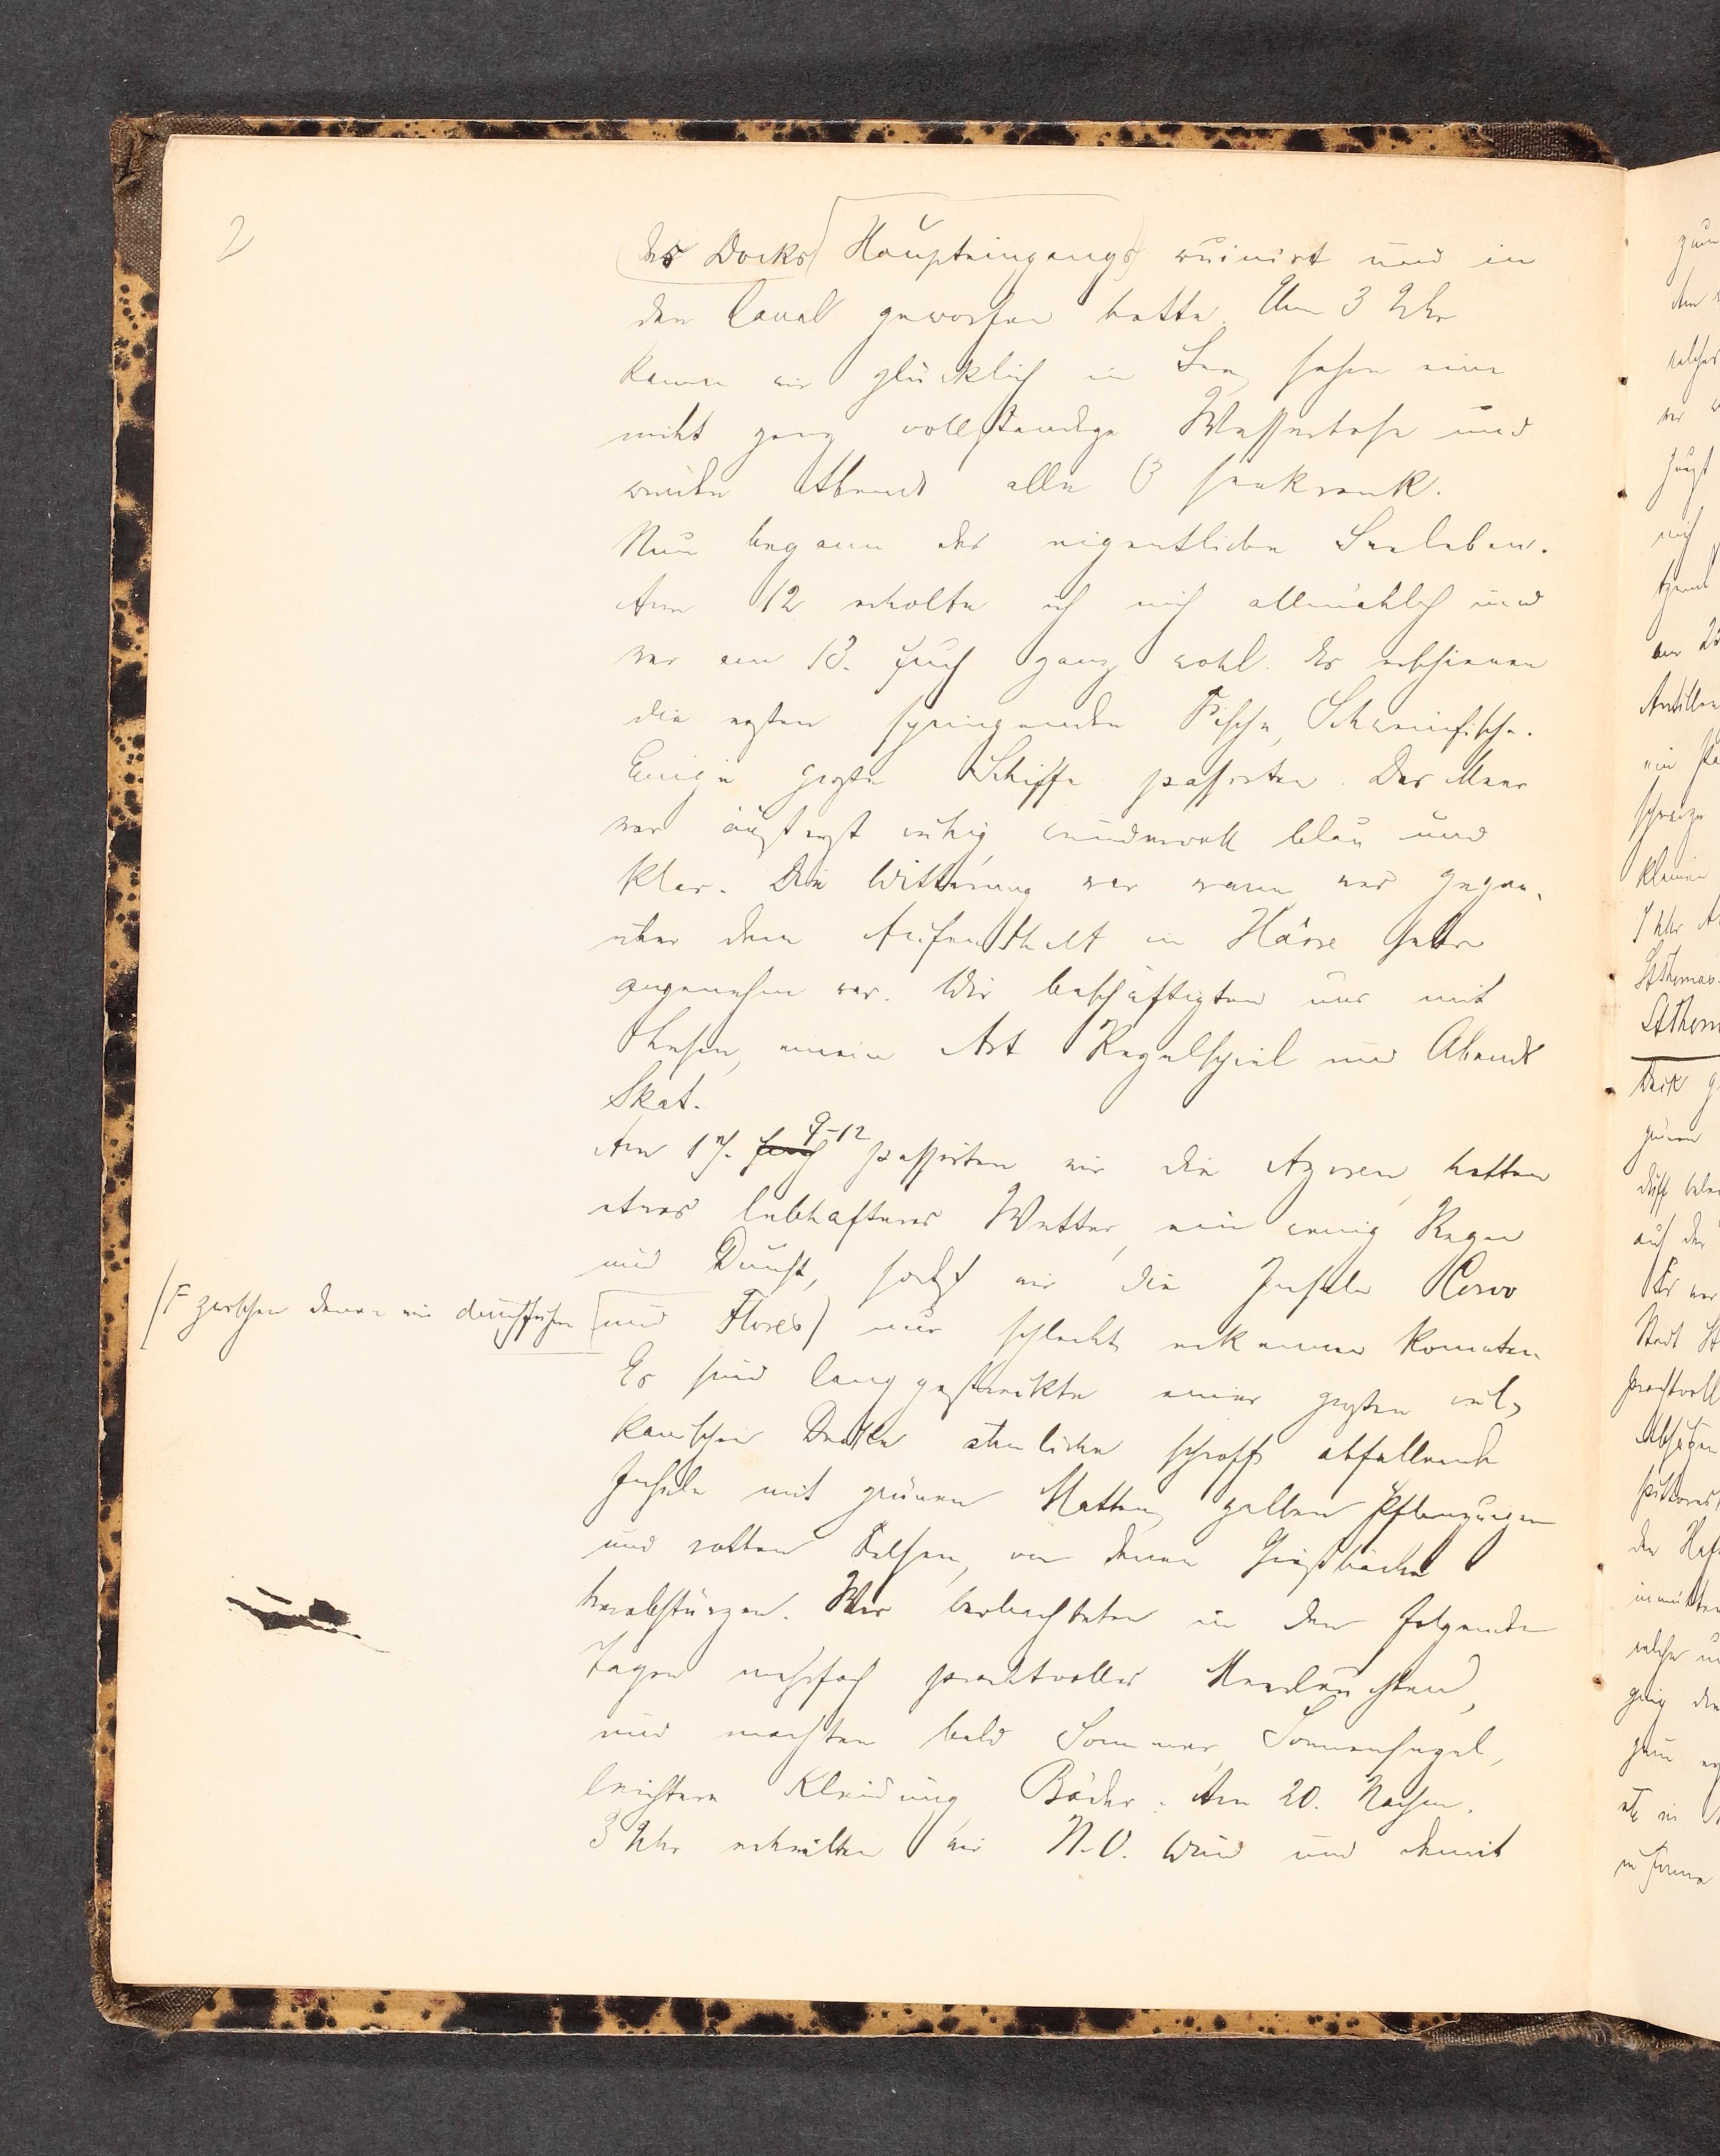 2
des Docks Haupteingangs ruinirt und in
den Canal geworfen hatte. Um 3 Uhr
kamen wir glücklich in See, sahen eine
nicht ganz vollständige Wasserhose und
wurden Abends alle 3 seekrank.
Nun begann das eigentliche Seeleben.
Am 12 erholte ich mich allmählich und
war am 13. früh ganz wohl. Es erschienen
die ersten springenden Fische, Schweinfische.
Einige große Schiffe passirten. Das Meer
war äußerst ruhig wundervoll blau und
klar. Die Witterung war warm was gegen-
über dem Aufenthalt in Hâvre sehr
angenehm war. Wir beschäftigten uns mit
Lesen, einer Art Kegelspiel und Abends
Skat.
Am 17. früh 9-12 passirten wir die Azoren, hatten
etwas lebhafteres Wetter, ein wenig Regen
und Dunst, so daß wir die Inseln Corvo
(F zwischen denen wir durchfuhren
und Flores) nur schlecht erkennen konnten.
Es sind langgestreckte einer großen vul-
kanischen Decke ähnliche schroff abfallende
Inseln mit grünen Matten, gelben Pflanzungen
und rothen Felsen, von denen Gießbäche
herabstürzen. Wir beobachteten in den folgenden
Tagen mehrfach prachtvolles Meerleuchten,
und machten bald Sommer, Sonnensegel,
leichtere Kleidung, Bäder. Am 20. Nachm.
3 Uhr erhielten wir N.O. Wind und damit